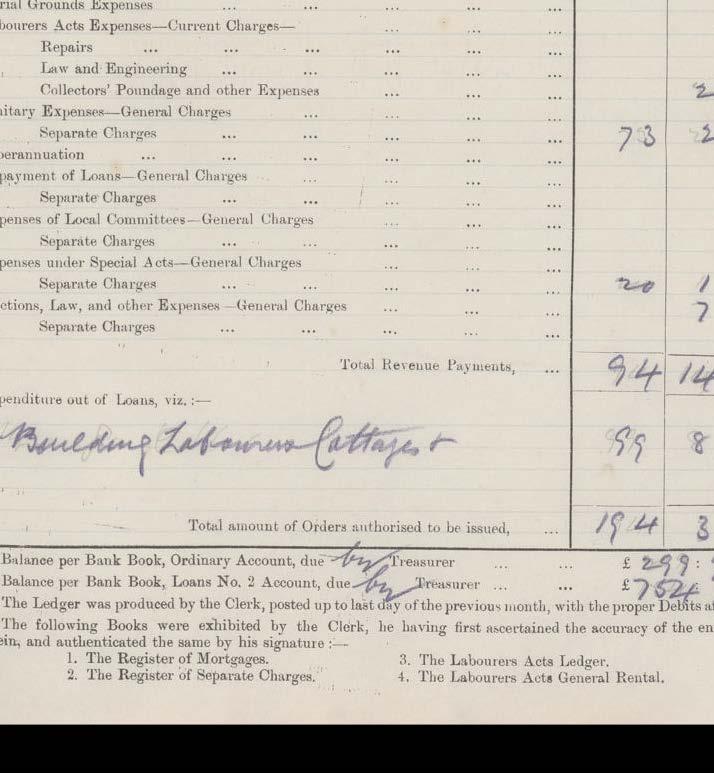 rial Grounds Expenses ... ... ... ... ...
bourers Acts Expenses—Current Charges— ... ... ...
Repairs ... ... ... ... ... ...
Law and Engineering ... ... ... ... ...
Collectors' Poundage and other Expenses ... ... ... 2
nitary Expenses—General Charges ... ... ... ...
Separate Charges ... ... ... ... ... 73 2
perannuation ... ... ... ... ... ...
payment of Loans—General Charges ... ... ... ...
Separate Charges ... ... ... ... ...
penses of Local Committees—General Charges ... ... ...
Separate Charges ... ... ... ... ...
penses under Special Acts—General Charges ... ... ...
Separate Charges ... ... ... ... ... 20 1
ctions, Law, and other Expenses—General Charges ... ... ... 7
Separate Charges ... ... ... ... ...
Total Revenue Payments, ... 94 14
penditure out of Loans, viz. :—
Building Labourers Cottages + 99 8
Total amount of Orders authorised to be issued, ... 194 3
Balance per Bank Book, Ordinary Account, due by Treasurer ... ... £ 299 :
Balance per Bank Book, Loans No. 2 Account, due by Treasurer ... ... £ 754
The Ledger was produced by the Clerk, posted up to last day of the previous month, with the proper Debits a
The following Books were exhibited by the Clerk, he having first ascertained the accuracy of the en
ein, and authenticated the same by his signature :—
1. The Register of Mortgages. 3. The Labourers Acts Ledger.
2. The Register of Separate Charges. 4. The Labourers Acts General Rental.